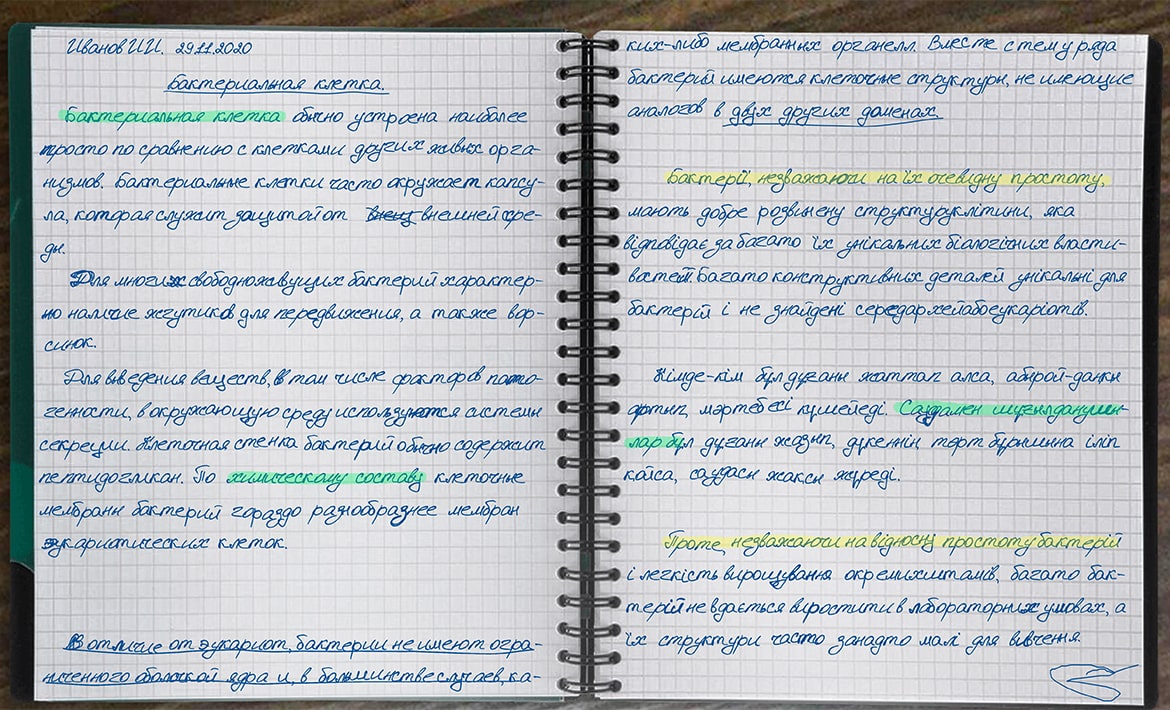 Иванов И.И. 29.11.2020
Бактериальная клетка.
Бактериальная клетка обычно устроена наиболее
просто по сравнению с клетками других живых орга-
низмов. Бактериальные клетки часто окружает капсу-
ла, которая служит защитой от внешней сре-
ды.
Для многих свободноживущих бактерий характер-
но наличие жгутиков для передвижения, а также вор-
синок.
Для выведения веществ, в том числе факторов пато-
генности, в окружающую среду используются системы
секреции. Клеточная стенка бактерий обычно содержит
пептидогликан. По химическому составу клеточные
мембраны бактерий гораздо разнообразнее мембран
эукариотических клеток.
В отличие от эукариот, бактерии не имеют огра-
ниченного оболочкой ядра и, в большинстве случаев, ка-
ких-либо мембранных органелл. Вместе с тем у ряда
бактерий имеются клеточные структуры, не имеющие
аналогов в двух других доменах.
Бактерії, незважаючи на їх очевидну простоту,
мають добре розвинену структуру клітини, яка
відповідає за багато їх унікальних біологічних власти-
востей. Багато конструктивних деталей унікальні для
бактерій і не знайдені серед архей або еукаріотів.
Кімде-кім бұл дуғаны жаттап алса, абырой-даңқы
артып, мәртебесі күшейеді. Саудамен шуғылданушы-
лар бұл дуғаны жазып, дүкеннің төрт бұрышына іліп
қойса, саудасы жақсы жүреді.
Проте, незважаючи на відносну простоту бактерій
і легкість вирощування окремих штамів, багато бак-
терій не вдається виростити в лабораторних умовах, а
їх структури часто занадто малі для вивчення.